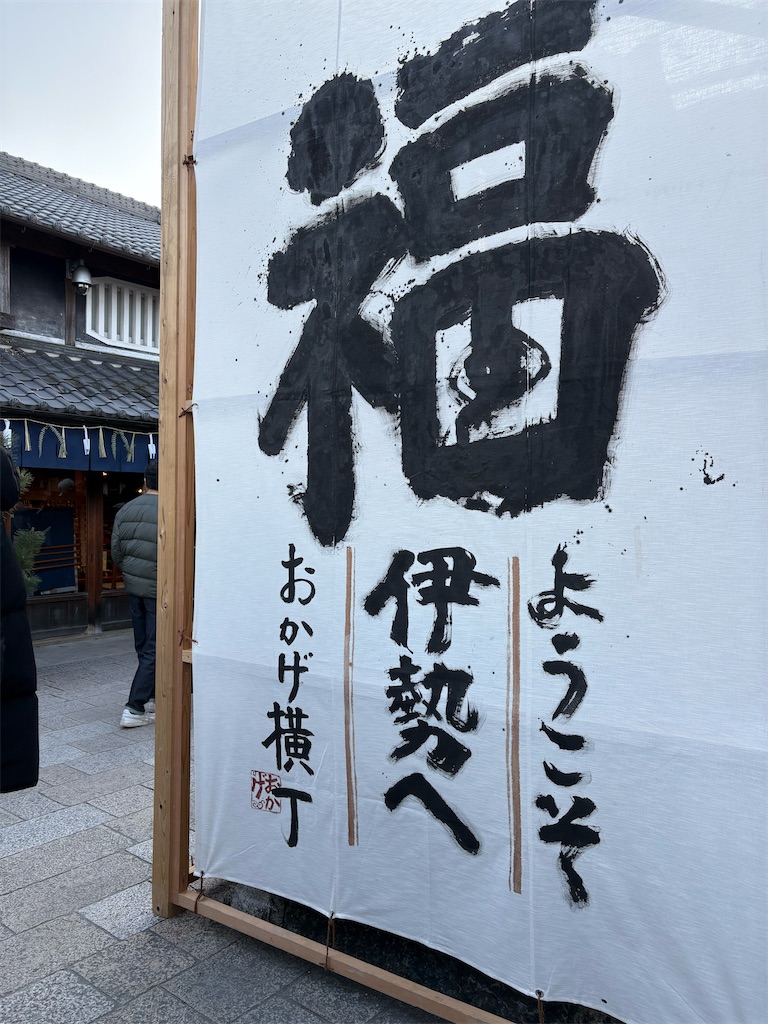 福
ようこそ
伊勢へ
おかげ横丁
おか
げ